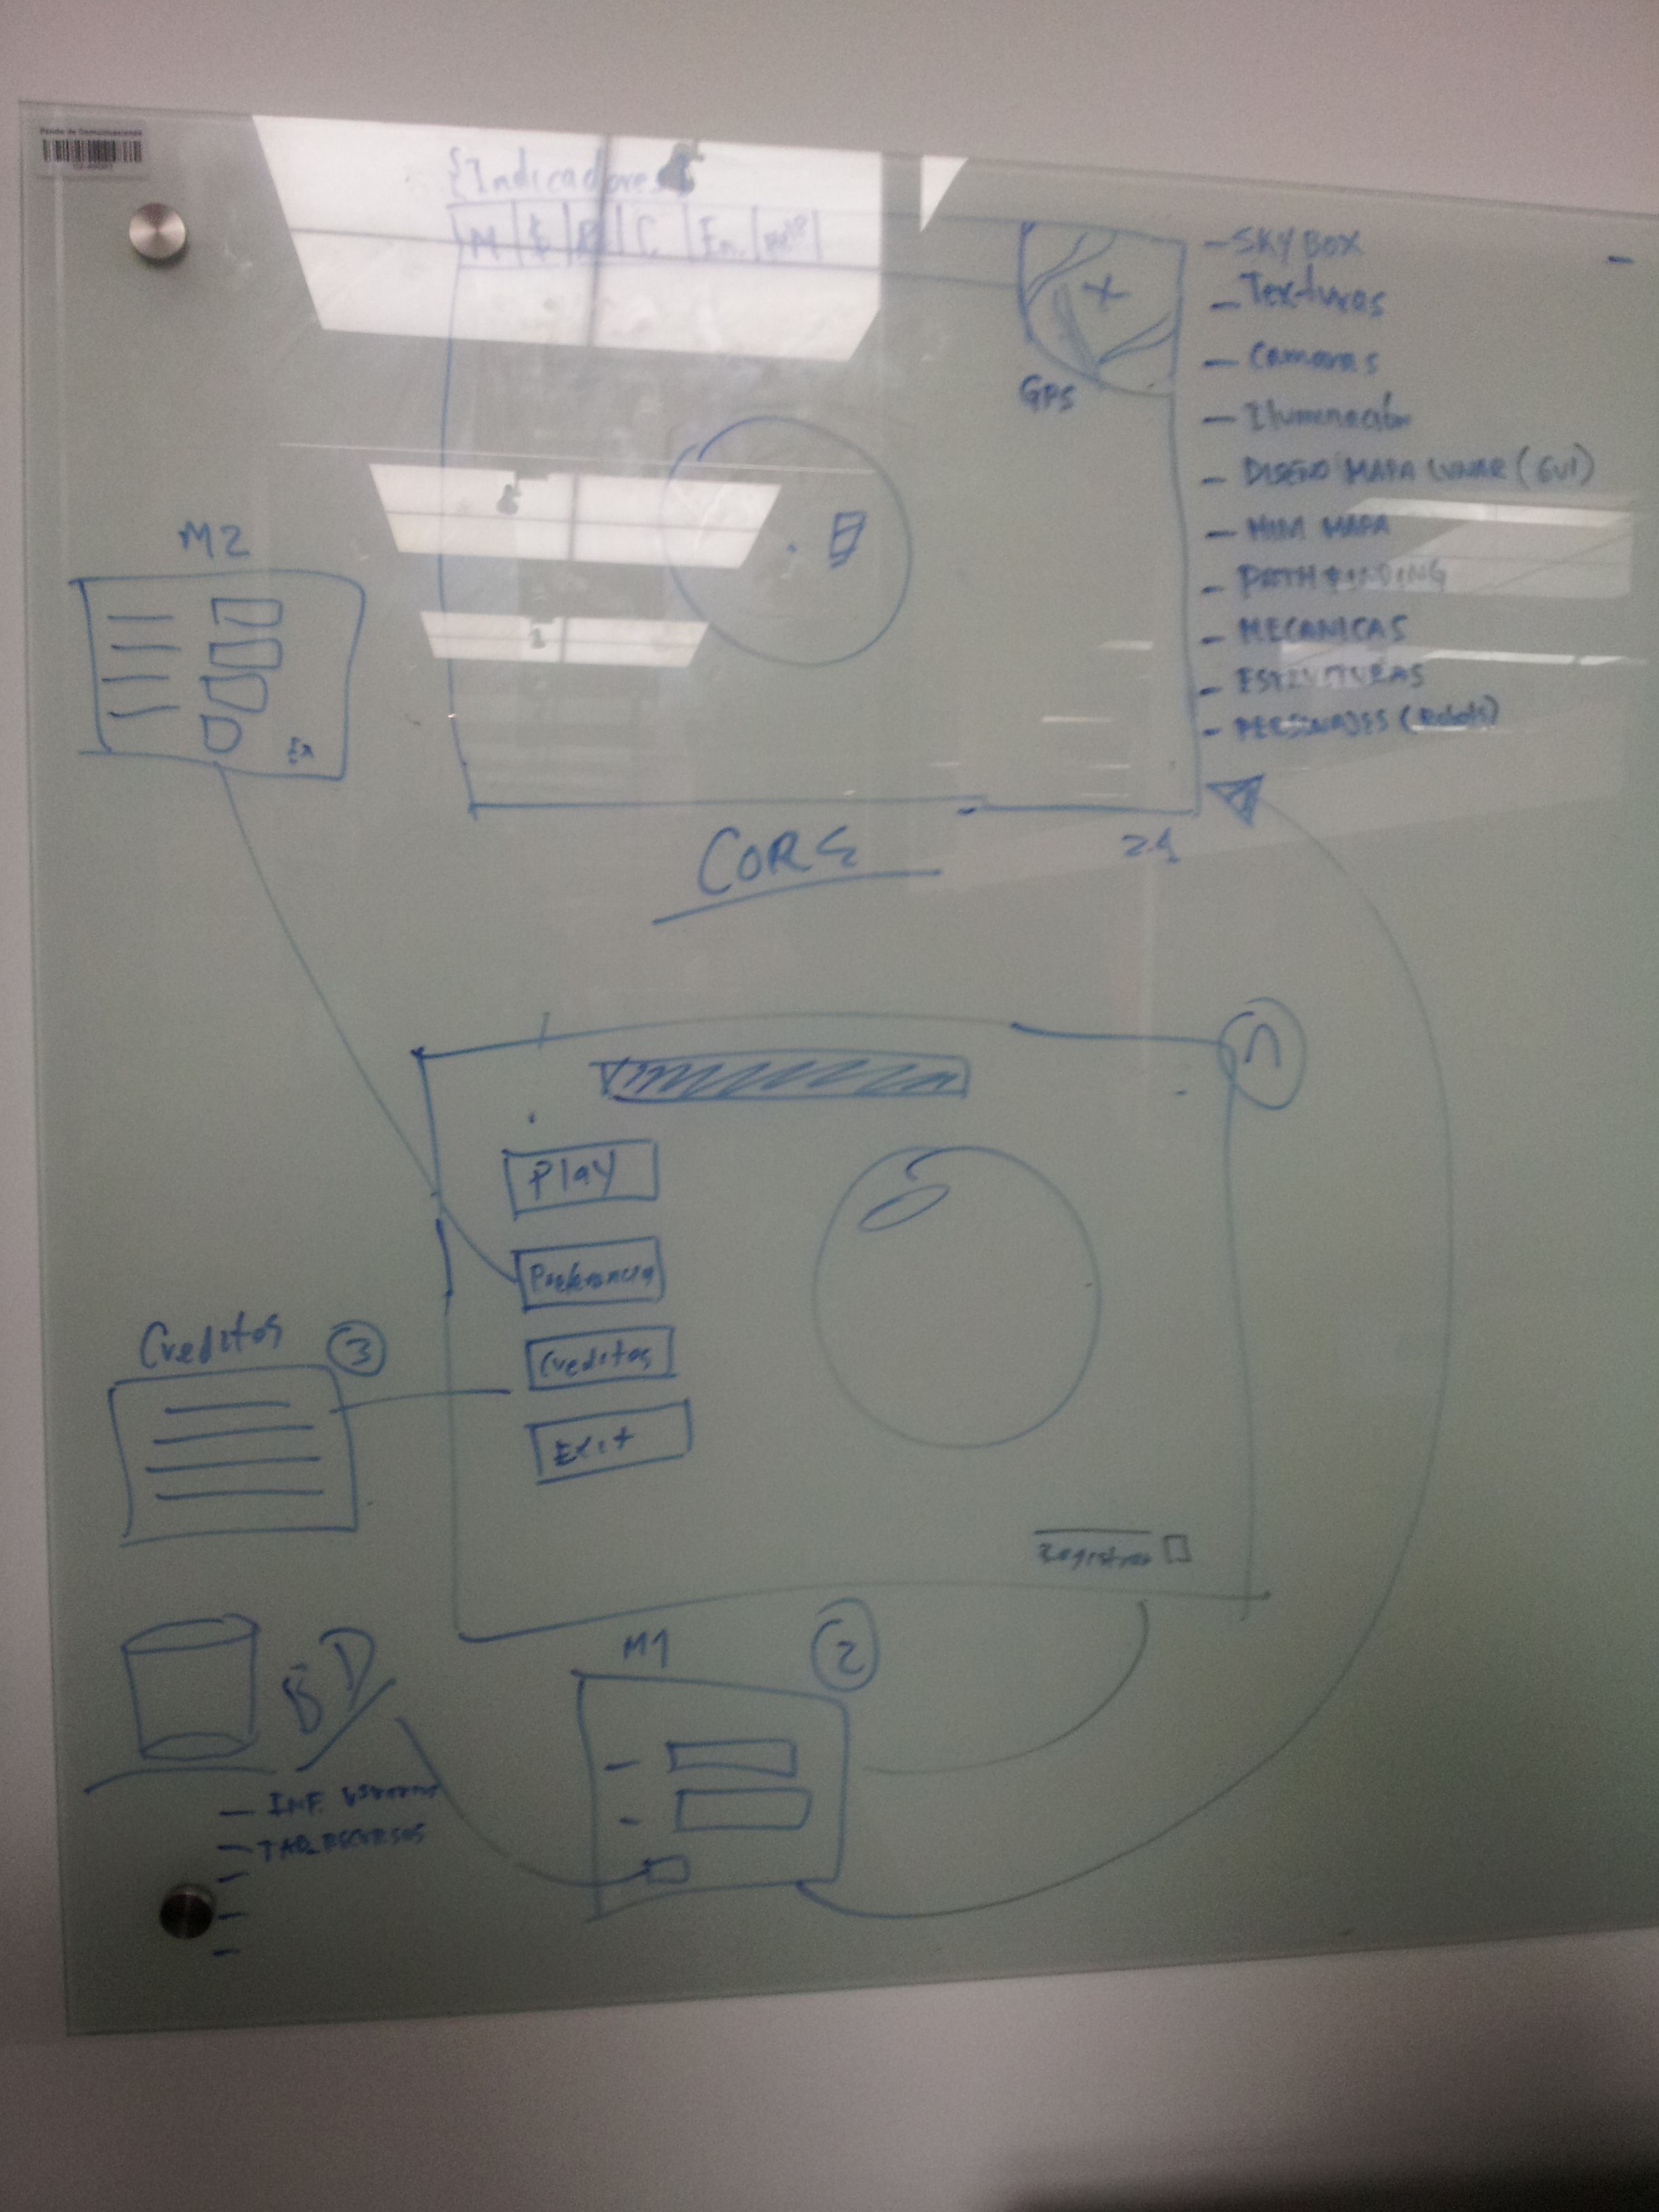 {Indicadores}
M $ B C En.
GPS
- SKY BOX
- Texturas
- Camaras
- Iluminación
- DISEÑO MAPA LUNAR (GUI)
- MINI MAPA
- PATH FINDING
- MECANICAS
- ESTRUCTURAS
- PERSONAJES (Robots)
M2
CORE
Play
Preferencia
Creditos
Exit
Creditos 3
Registrar
M1 2
BD
- INF. USUARIO
- TAB_RECURSOS